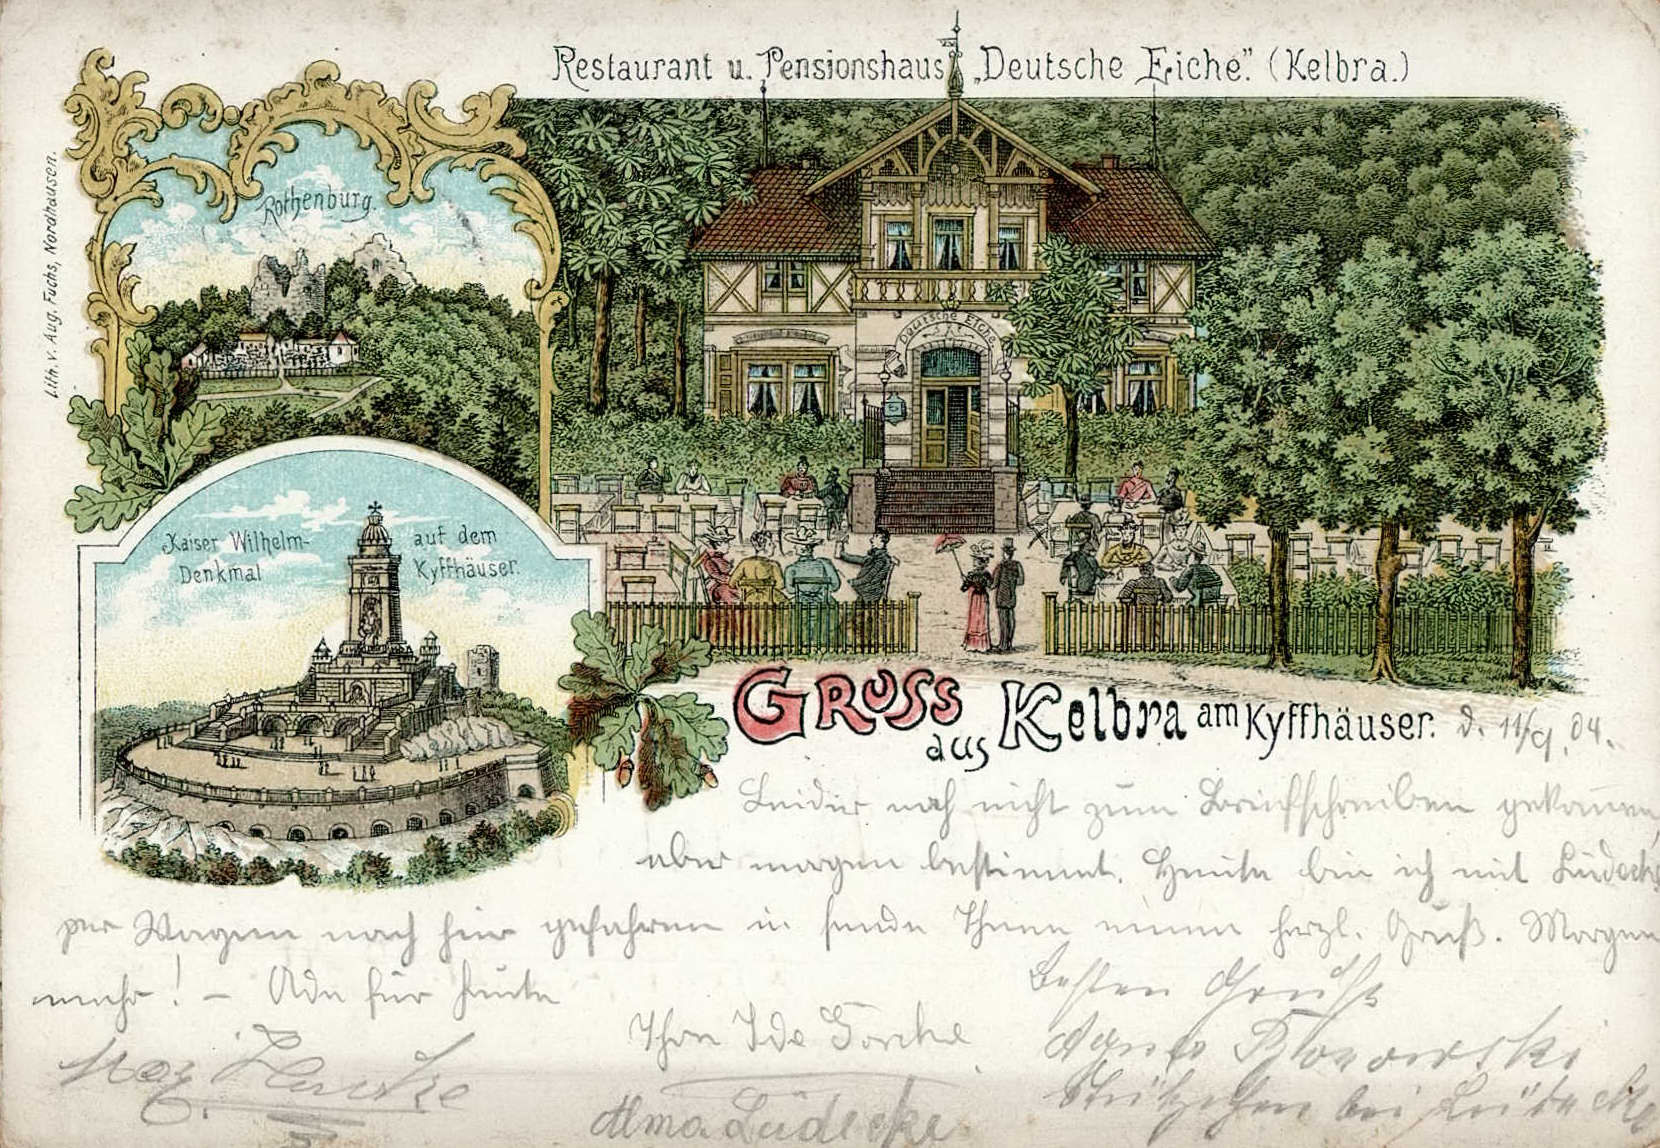 Restaurant u. Pensionshaus „Deutsche Eiche." (Kelbra.)
Rothenburg.
Lith. v. Aug. Fuchs, Nordhausen.
Deutsche Eiche
Kaiser Wilhelm-
Denkmal
auf dem
Kyffhäuser.
GRUSS
aus Kelbra am Kyffhäuser. d. 11/9. 04.
Leider noch nicht zum Briefschreiben gekommen,
aber morgen bestimmt. Heute bin ich mit Lüdecke
per Wagen nach hier gefahren u. sende Ihnen einen herzl. Gruß. Morgen
mehr! – Ade für heute
Besten Gruß
Ida
Agnes
Max
bei Lüdecke
Alma Lüdecke